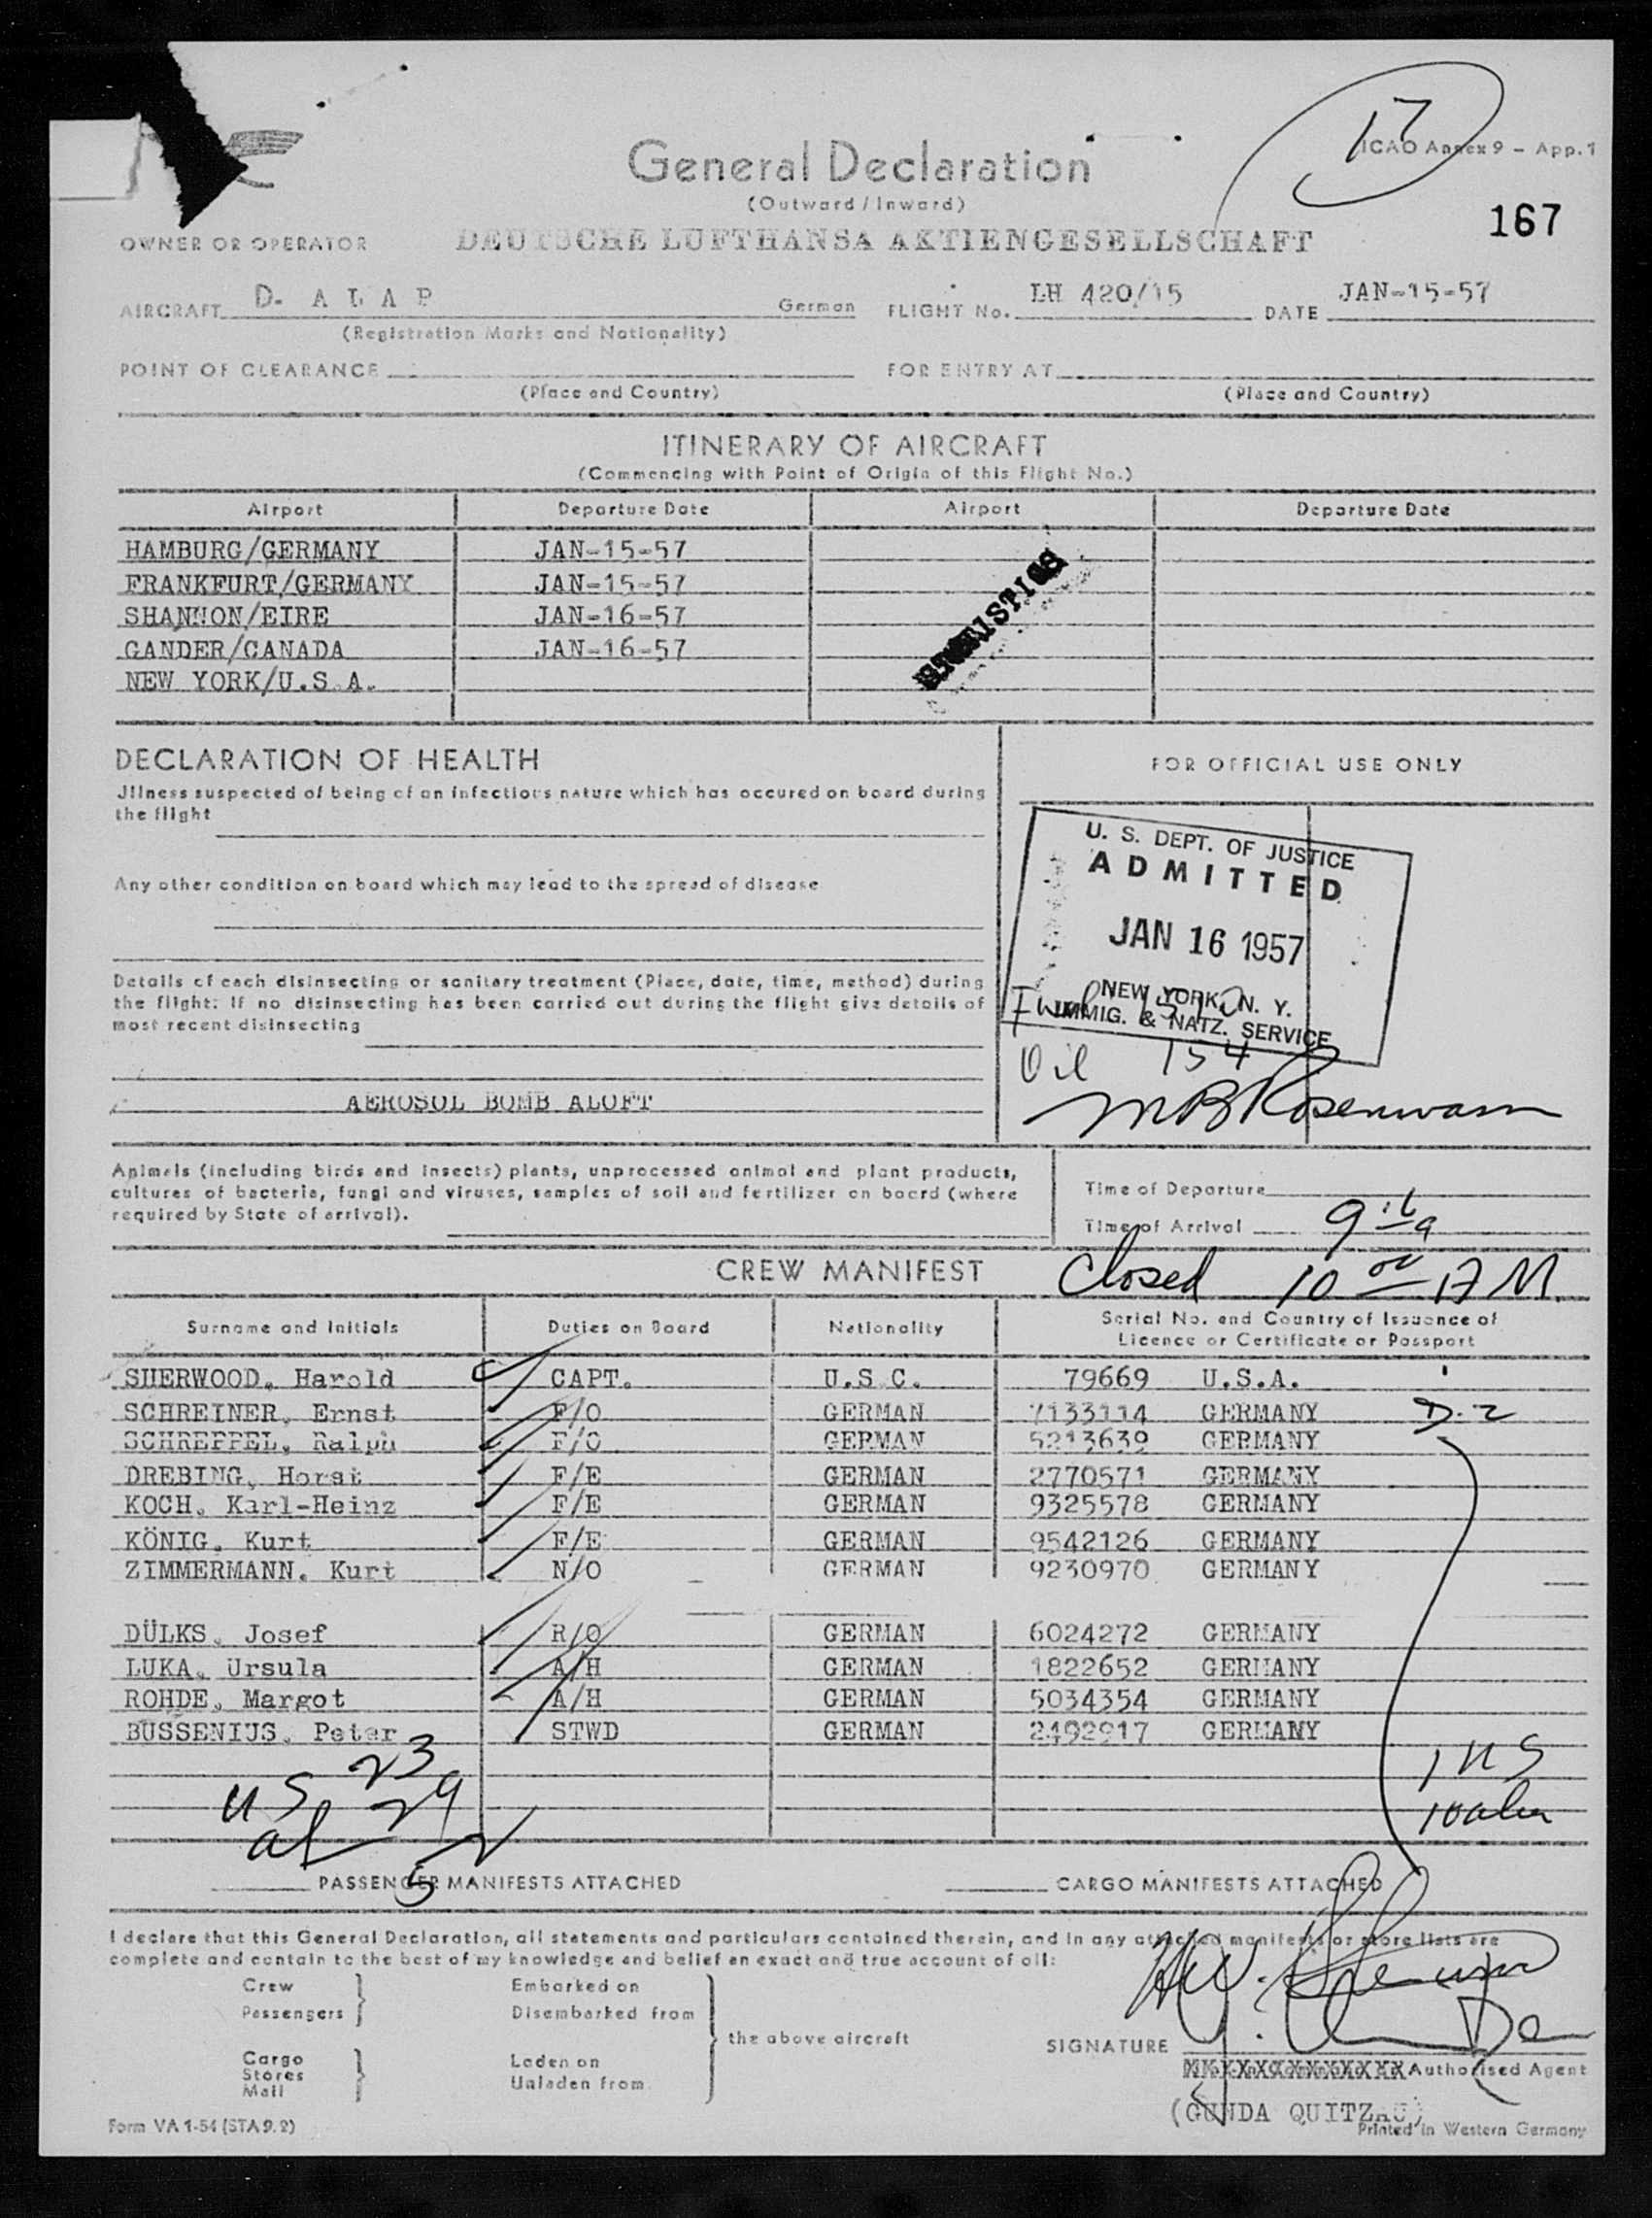 17
ICAO Annex 9 - App. 1
General Declaration
(Outward / Inward)
167
OWNER OR OPERATOR DEUTSCHE LUFTHANSA AKTIENGESELLSCHAFT
AIRCRAFT D- A L A P German FLIGHT No. LH 420/15 DATE JAN-15-57
(Registration Marks and Nationality)
POINT OF CLEARANCE FOR ENTRY AT
(Place and Country) (Place and Country)
ITINERARY OF AIRCRAFT
(Commencing with Point of Origin of this Flight No.)
Airport Departure Date Airport Departure Date
HAMBURG/GERMANY JAN-15-57
FRANKFURT/GERMANY JAN-15-57
SHANNON/EIRE JAN-16-57
GANDER/CANADA JAN-16-57
NEW YORK/U.S.A.
DECLARATION OF HEALTH
Jllness suspected of being of an infectious nature which has occured on board during
the flight
Any other condition on board which may lead to the spread of disease
Details of each disinsecting or sanitary treatment (Place, date, time, method) during
the flight: If no disinsecting has been carried out during the flight give details of
most recent disinsecting
AEROSOL BOMB ALOFT
FOR OFFICIAL USE ONLY
U. S. DEPT. OF JUSTICE
ADMITTED
JAN 16 1957
NEW YORK, N. Y.
IMMIG. & NATZ. SERVICE
Oil 154
Animals (including birds and insects) plants, unprocessed animal and plant products,
cultures of bacteria, fungi and viruses, samples of soil and fertilizer on board (where
required by State of arrival).
Time of Departure
Time of Arrival
CREW MANIFEST Closed 10 00 AM
Surname and Initials Duties on Board Nationality Serial No. and Country of Issuance of
Licence or Certificate or Passport
SHERWOOD, Harold CAPT. U.S.C. 79669 U.S.A.
SCHREINER, Ernst F/O GERMAN 7133114 GERMANY D-2
SCHREFFEL, Ralph F/O GERMAN 5213639 GERMANY
DREBING, Horst F/E GERMAN 2770571 GERMANY
KOCH, Karl-Heinz F/E GERMAN 9325578 GERMANY
KÖNIG, Kurt F/E GERMAN 9542126 GERMANY
ZIMMERMANN, Kurt N/O GERMAN 9230970 GERMANY
DÜLKS, Josef R/O GERMAN 6024272 GERMANY
LUKA, Ursula A/H GERMAN 1822652 GERMANY
ROHDE, Margot A/H GERMAN 5034354 GERMANY
BUSSENIUS, Peter STWD GERMAN 2492917 GERMANY
US 23
al 29
52
1 US
10 alien
PASSENGER MANIFESTS ATTACHED CARGO MANIFESTS ATTACHED
I declare that this General Declaration, all statements and particulars contained therein, and in any attached manifests or store lists are
complete and contain to the best of my knowledge and belief an exact and true account of all:
Crew Embarked on
Passengers Disembarked from
the above aircraft
Cargo Laden on
Stores Unladen from
Mail
SIGNATURE
Authorised Agent
(GUNDA QUITZAU)
Form VA 1-54 (STA 9.2) Printed in Western Germany